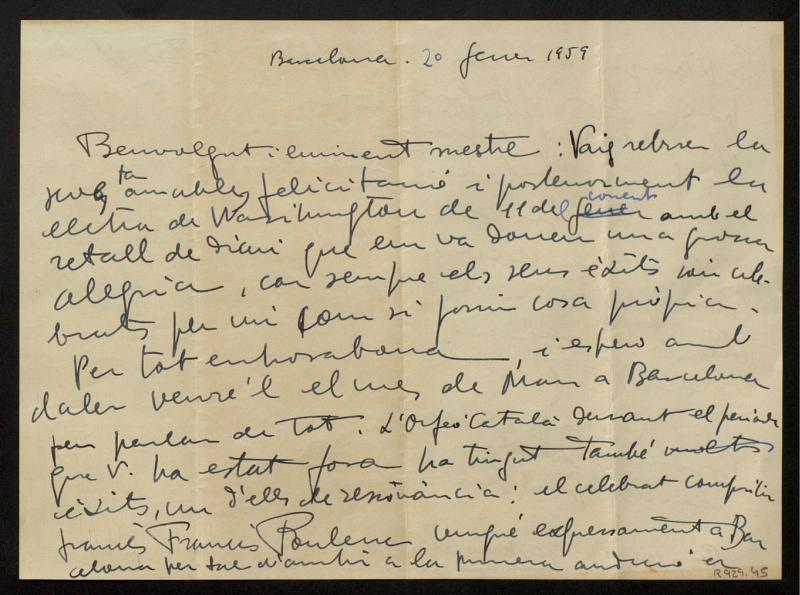 Barcelona. 20 gener 1959
Benvolgut i eminent mestre: Vaig rebrer la
seva tan amable felicitació i posteriorment la
lletra de Washington de 11 del gener corrent amb el
retall de diari que em va donar una grossa
alegria, car sempre els seus èxits són cele-
brats per mi com si fossin cosa pròpia.
Per tot enhorabona, i espero amb
daler veure'l el mes de Març a Barcelona
per parlar de tot. L'Orfeó Català durant el període
que V. ha estat fora ha tingut també
èxits, un d'ells de ressonància: el celebrat compositor
francès Francis Poulenc vingué expressament a Bar
celona per tal d'assistir a la primera audició
R929.45